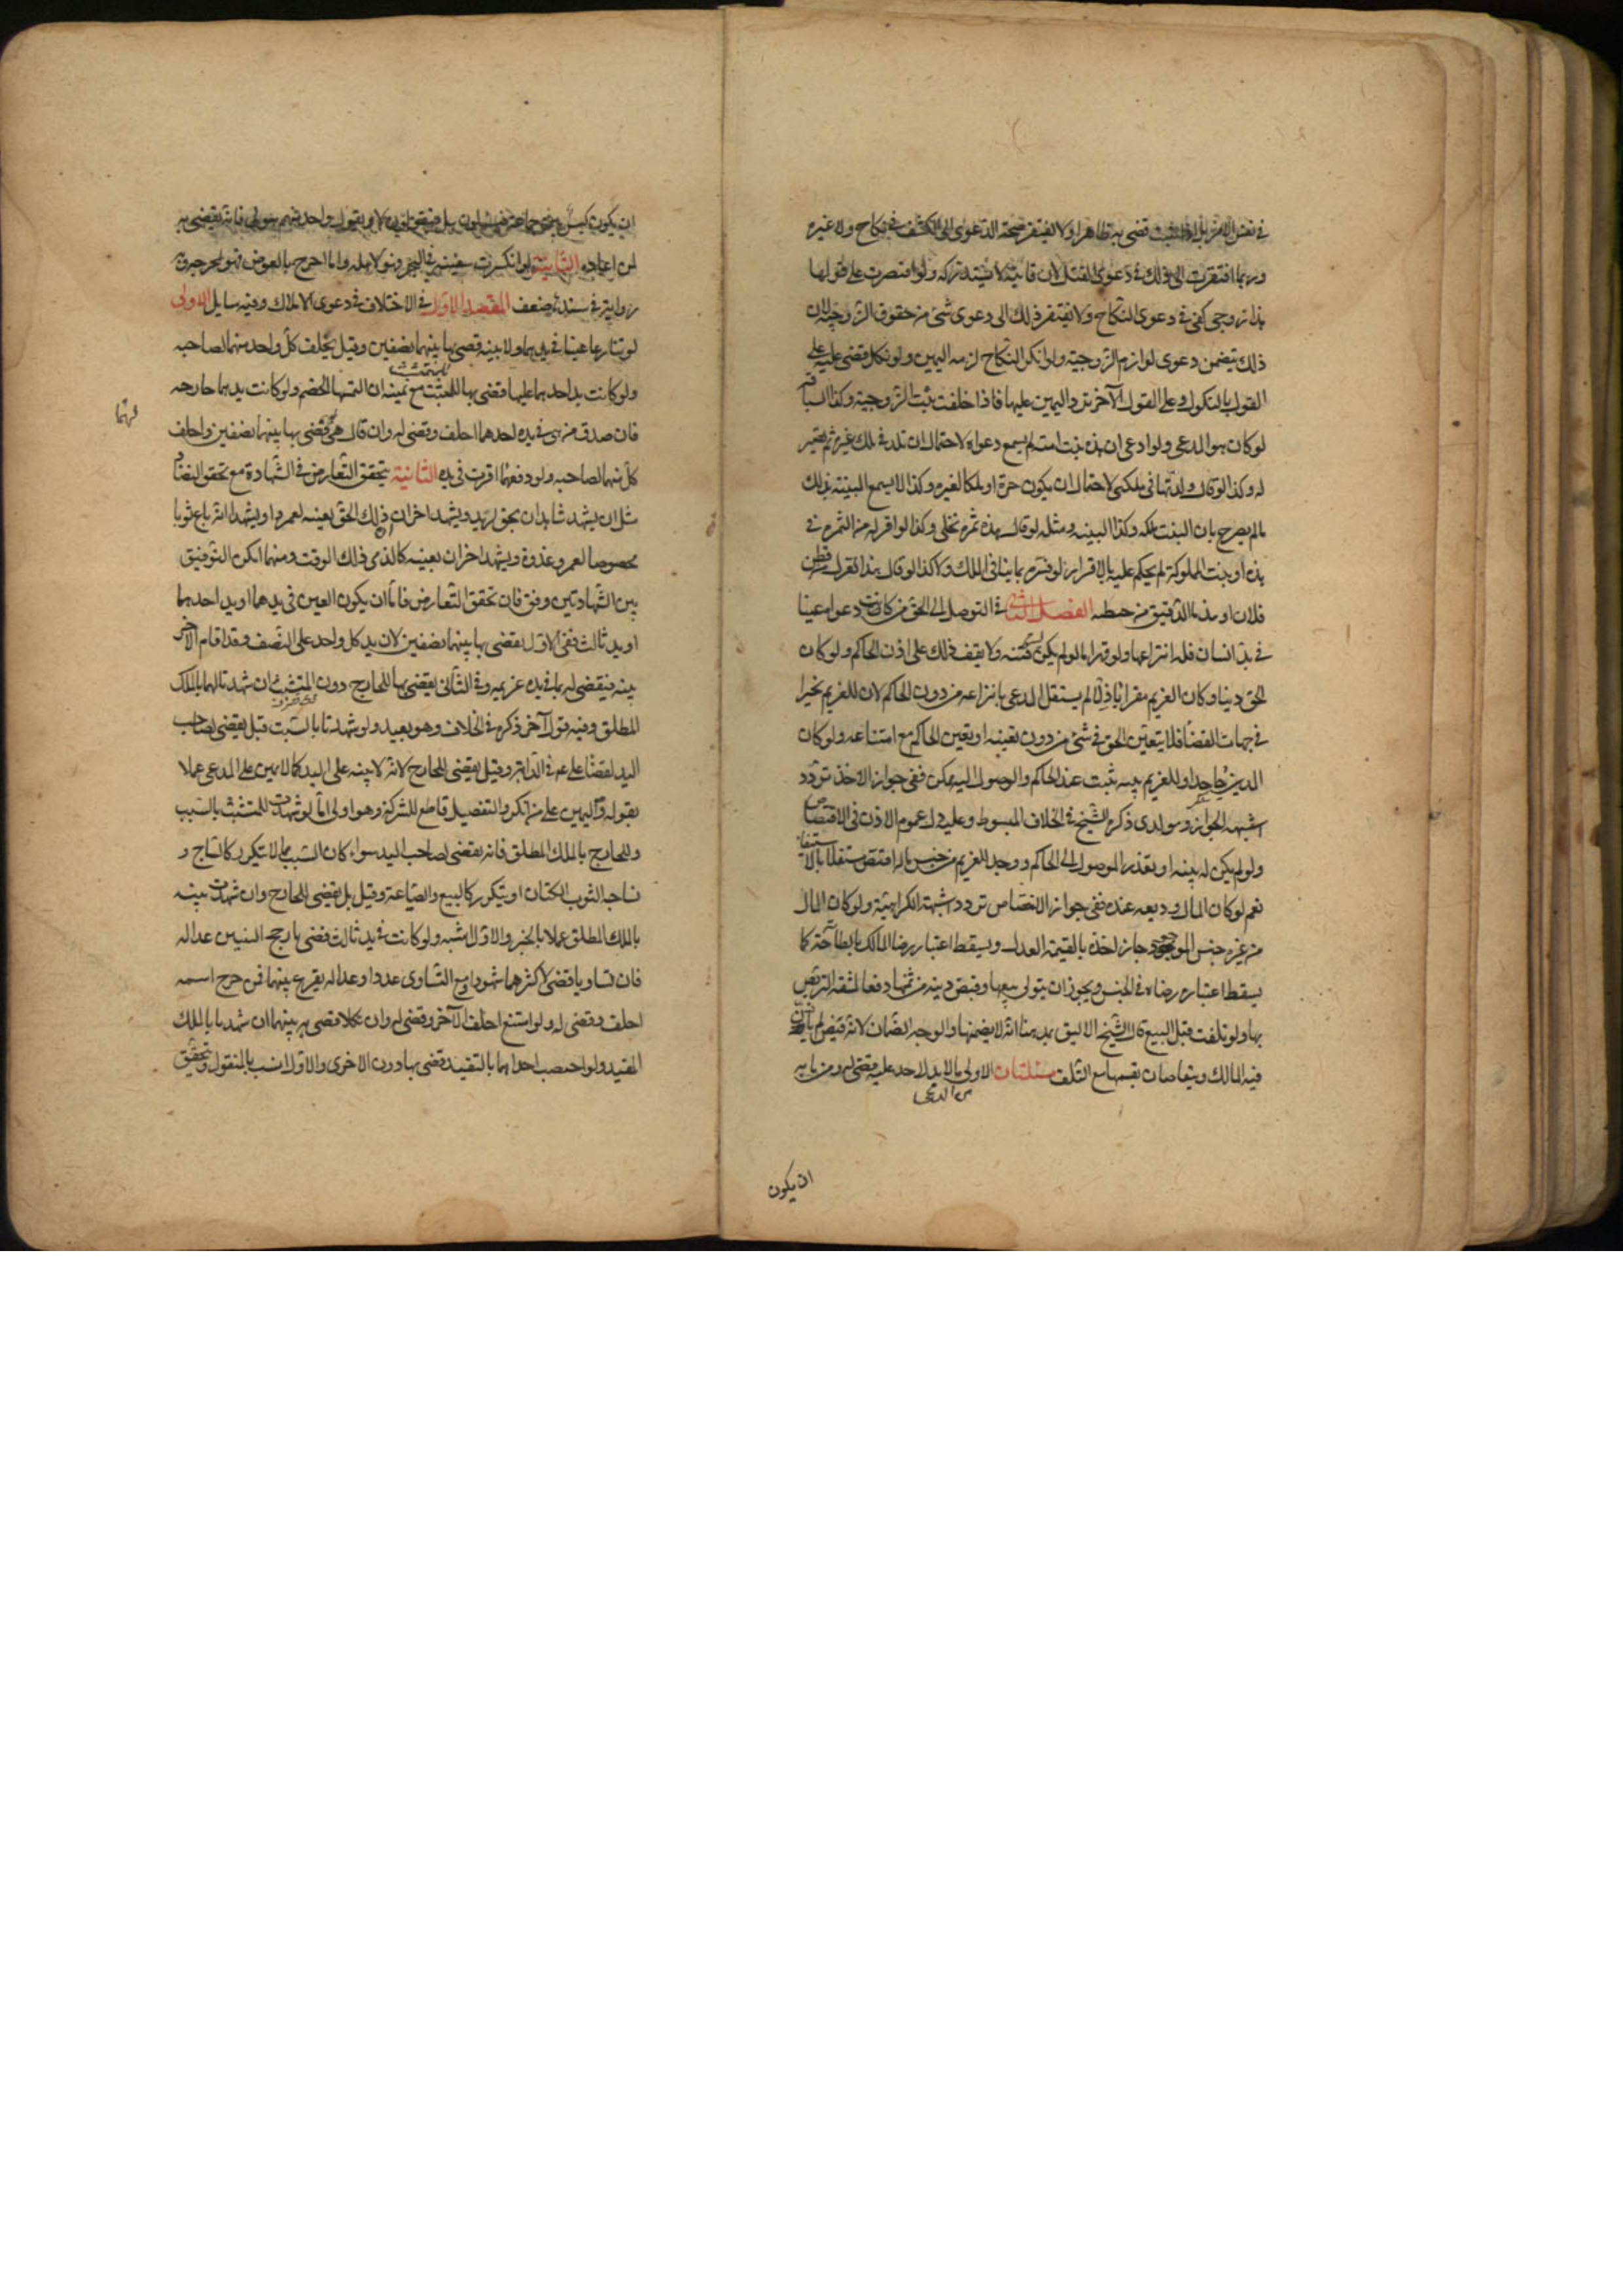 في نفس الامر بل اذا ثبت قضي به ظاهرا ولا يفتقر صحة الدعوى الى الكشف في نكاح ولا غيره
وربما افتقرت الى ذلك في دعوى القتل لان فائته لا يستدرك ولو اقتصرت على قولها
هذا زوجي كفى في دعوى النكاح ولا يفتقر ذلك الى دعوى شئ من حقوق الزوجية لان
ذلك يتضمن دعوى لوازم الزوجية ولو انكر النكاح لزمه اليمين ولو نكل قضي عليه على
القول بالنكول وعلى القول الآخر ترد اليمين عليها فاذا حلفت ثبت الزوجية وكذا السياقة
لو كان هو المدعى ولو ادعى ان هذه بنت امته لم يسمع دعواه لاحتمال ان تلد في ملك غيره ثم تصير
له وكذا لو قال ولدتها في ملكي لاحتمال ان يكون حرة او ملكا لغيره وكذا لا يسمع البينة بذلك
مالم يصرح بان البنت ملكه وكذا البينه ومثله لو قال هذه ثمرة نخلي وكذا لو اقر له من الثمرة في
يده او بنت المملوكة لم يحكم عليه بالاقرار لو فسره بما ينافي الملك ولا كذا لو قال هذا الغزل من قطن
فلان او هذا الدقيق من حنطه الفصل الثاني في التوصل الى الحق من كانت دعواه عينا
في يد انسان فله انتزاعها ولو قهرا مالم يكن فتنه ولا يقف ذلك على اذن الحاكم ولو كان
الحق دينا وكان الغريم مقرا باذلا لم يستقل المدعى بانتزاعه من دون الحاكم لان للغريم تخيرا
في جهات القضأ فلا يتعين الحق في شئ من دون تعينه او تعين الحاكم مع امتناعه ولو كان
المدين جاحدا وللغريم بينه تثبت عند الحاكم والوصول اليه ممكن ففي جواز الاخذ تردد
اشبهه الجواز وهو الذى ذكره الشيخ في الخلاف المبسوط وعليه دل عموم الاذن في الاقتصاص
ولو لم يكن له بينه او تعذر الوصول الى الحاكم ووجد الغريم من جنس ماله اقتص مستقلا بالاستيفاء
نعم لو كان المال وديعه عنده ففي جواز الاقتصاص تردد اشبهه الكراهية ولو كان المال
من غير جنس الموجود جاز اخذه بالقيمة العدل ويسقط اعتبار رضا المالك بالطاطه كما
يسقط اعتبار رضاه في الجنس ويجوز ان يتولى بيعها وقبض دينه من ثمنها دفعا لمشقة التربص
بها ولو تلفت قبل البيع قال الشيخ الاليق بمذهبنا انه لا يضمنها والوجه الضمان لانه قبض لم ياذن
فيه المالك ويتقاصان بقيمتها مع التلف مسئلتان الاولى ما لا يد لاحد عليه قضي له ومن بابه
من ادعى
ان يكون
ان يكون كيس بين جماعة فيسئلون هل هو لكم فيقولون لا ويقول واحد منهم هو لي فانه يقضى به
لمن ادعاه الثانية لو انكسرت سفينة في البحر فهو لاهله وما اخرج بالغوص فهو لمخرجه
رواية في سندها ضعف المقصد الاول في الاختلاف في دعوى الاملاك وفيه مسايل الاولى
لو تنازعا عينا في يدهما ولا بينه قضي بها بينهما نصفين وقيل يحلف كل واحد منهما لصاحبه
ولو كانت يد احدهما عليها قضي بها للمتشبث مع يمينه ان التمسها الخصم ولو كانت يدهما خارجه
فان صدق من هى في يده احدهما احلف وقضي له وان قال هي لهما قضي بها بينهما نصفين واحلف
كل منهما لصاحبه ولو دفعهما اقرت في يده الثانية يتحقق التعارض في الشهادة مع تحقق التضاد
مثل ان يشهد شاهدان بحق لزيد ويشهد اخران ذلك الحق بعينه لعمرو او يشهدا انه باع ثوبا
مخصوصا لعمرو غدوة ويشهد اخران بعينه كالذى ذلك الوقت ومهما امكن التوفيق
بين الشهادتين وفق فان تحقق التعارض فاما ان يكون العين في يدهما او يد احدهما
او يد ثالث ففي الاول يقضى بها بينهما نصفين لان يد كل واحد على النصف وقد اقام الآخر
بينه فيقضى له بما في يده غريمه وفي الثانى يقضى بها للخارج دون المتشبث ان شهدتا لهما بالملك
المطلق وفيه قول آخر ذكره في الخلاف وهو بعيد ولو شهدتا بالسبب قيل يقضى لصاحب
اليد لقضأ على ع في الدابة وقيل يقضى للخارج لانه لا بينه على اليد كما لا يمين على المدعى عملا
بقوله واليمين على من انكر والتفصيل قاطع للشركة وهو اولى اما لو شهدت للمتشبث بالسبب
وللخارج بالملك المطلق فانه يقضى لصاحب اليد سواء كان السبب مما لا يتكرر كالنتاج و
نساجه الثوب الكتان او يتكرر كالبيع والصياغة وقيل بل يقضى للخارج وان شهدت بينه
بالملك المطلق عملا بالخبر والاول اشبه ولو كانت في يد ثالث قضي بارجح البينتين عداله
فان تساويا قضي لاكثرهما شهودا ومع التساوى عددا وعداله يقرع بينهما فمن خرج اسمه
احلف وقضي له ولو امتنع احلف الآخر وقضي له وان نكلا قضي به بينهما ان شهدتا بالملك
المقيد ولو اختصت احداهما بالتقييد قضي بها دون الاخرى والاول انسب بالمنقول وتحقق
لهما